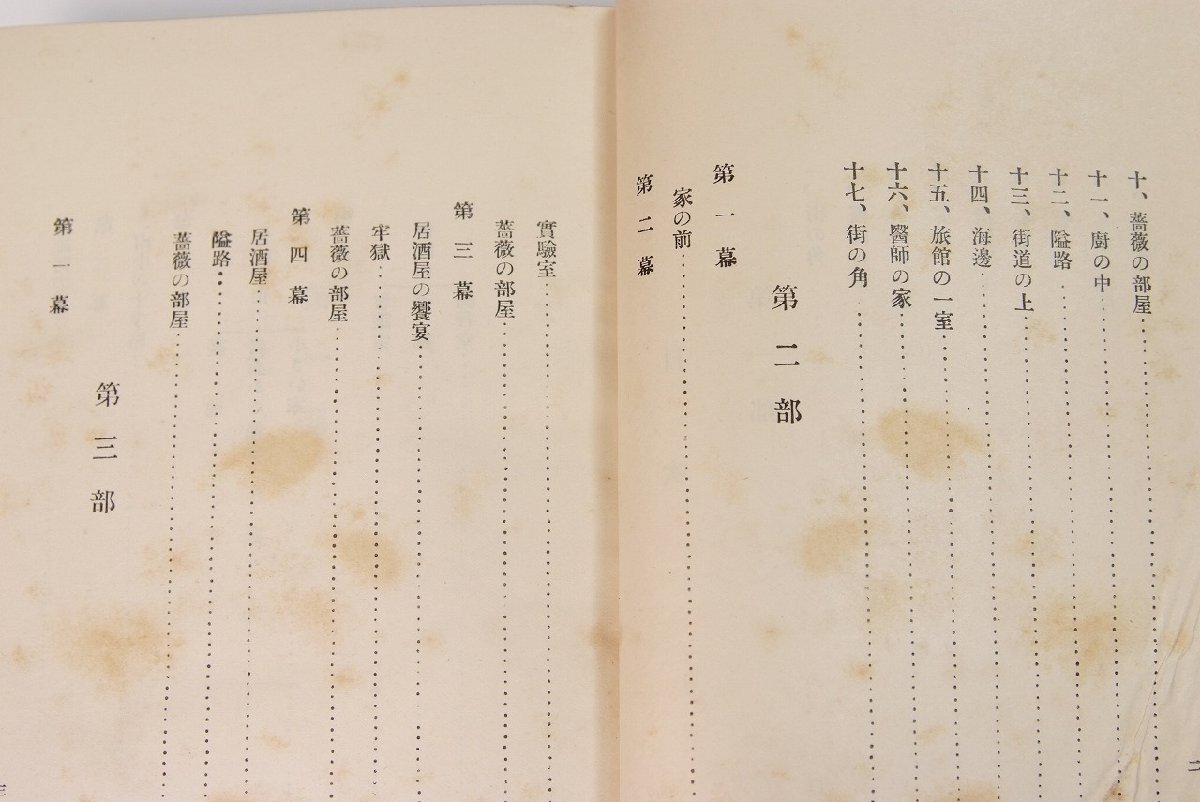 十、薔薇の部屋
十一、廚の中
十二、隘路
十三、街道の上
十四、海邊
十五、旅館の一室
十六、醫師の家
十七、街の角
第二部
第一幕
家の前
第二幕
實驗室
薔薇の部屋
第三幕
居酒屋の饗宴
牢獄
第四幕
薔薇の部屋
居酒屋
隘路
薔薇の部屋
第三部
第一幕